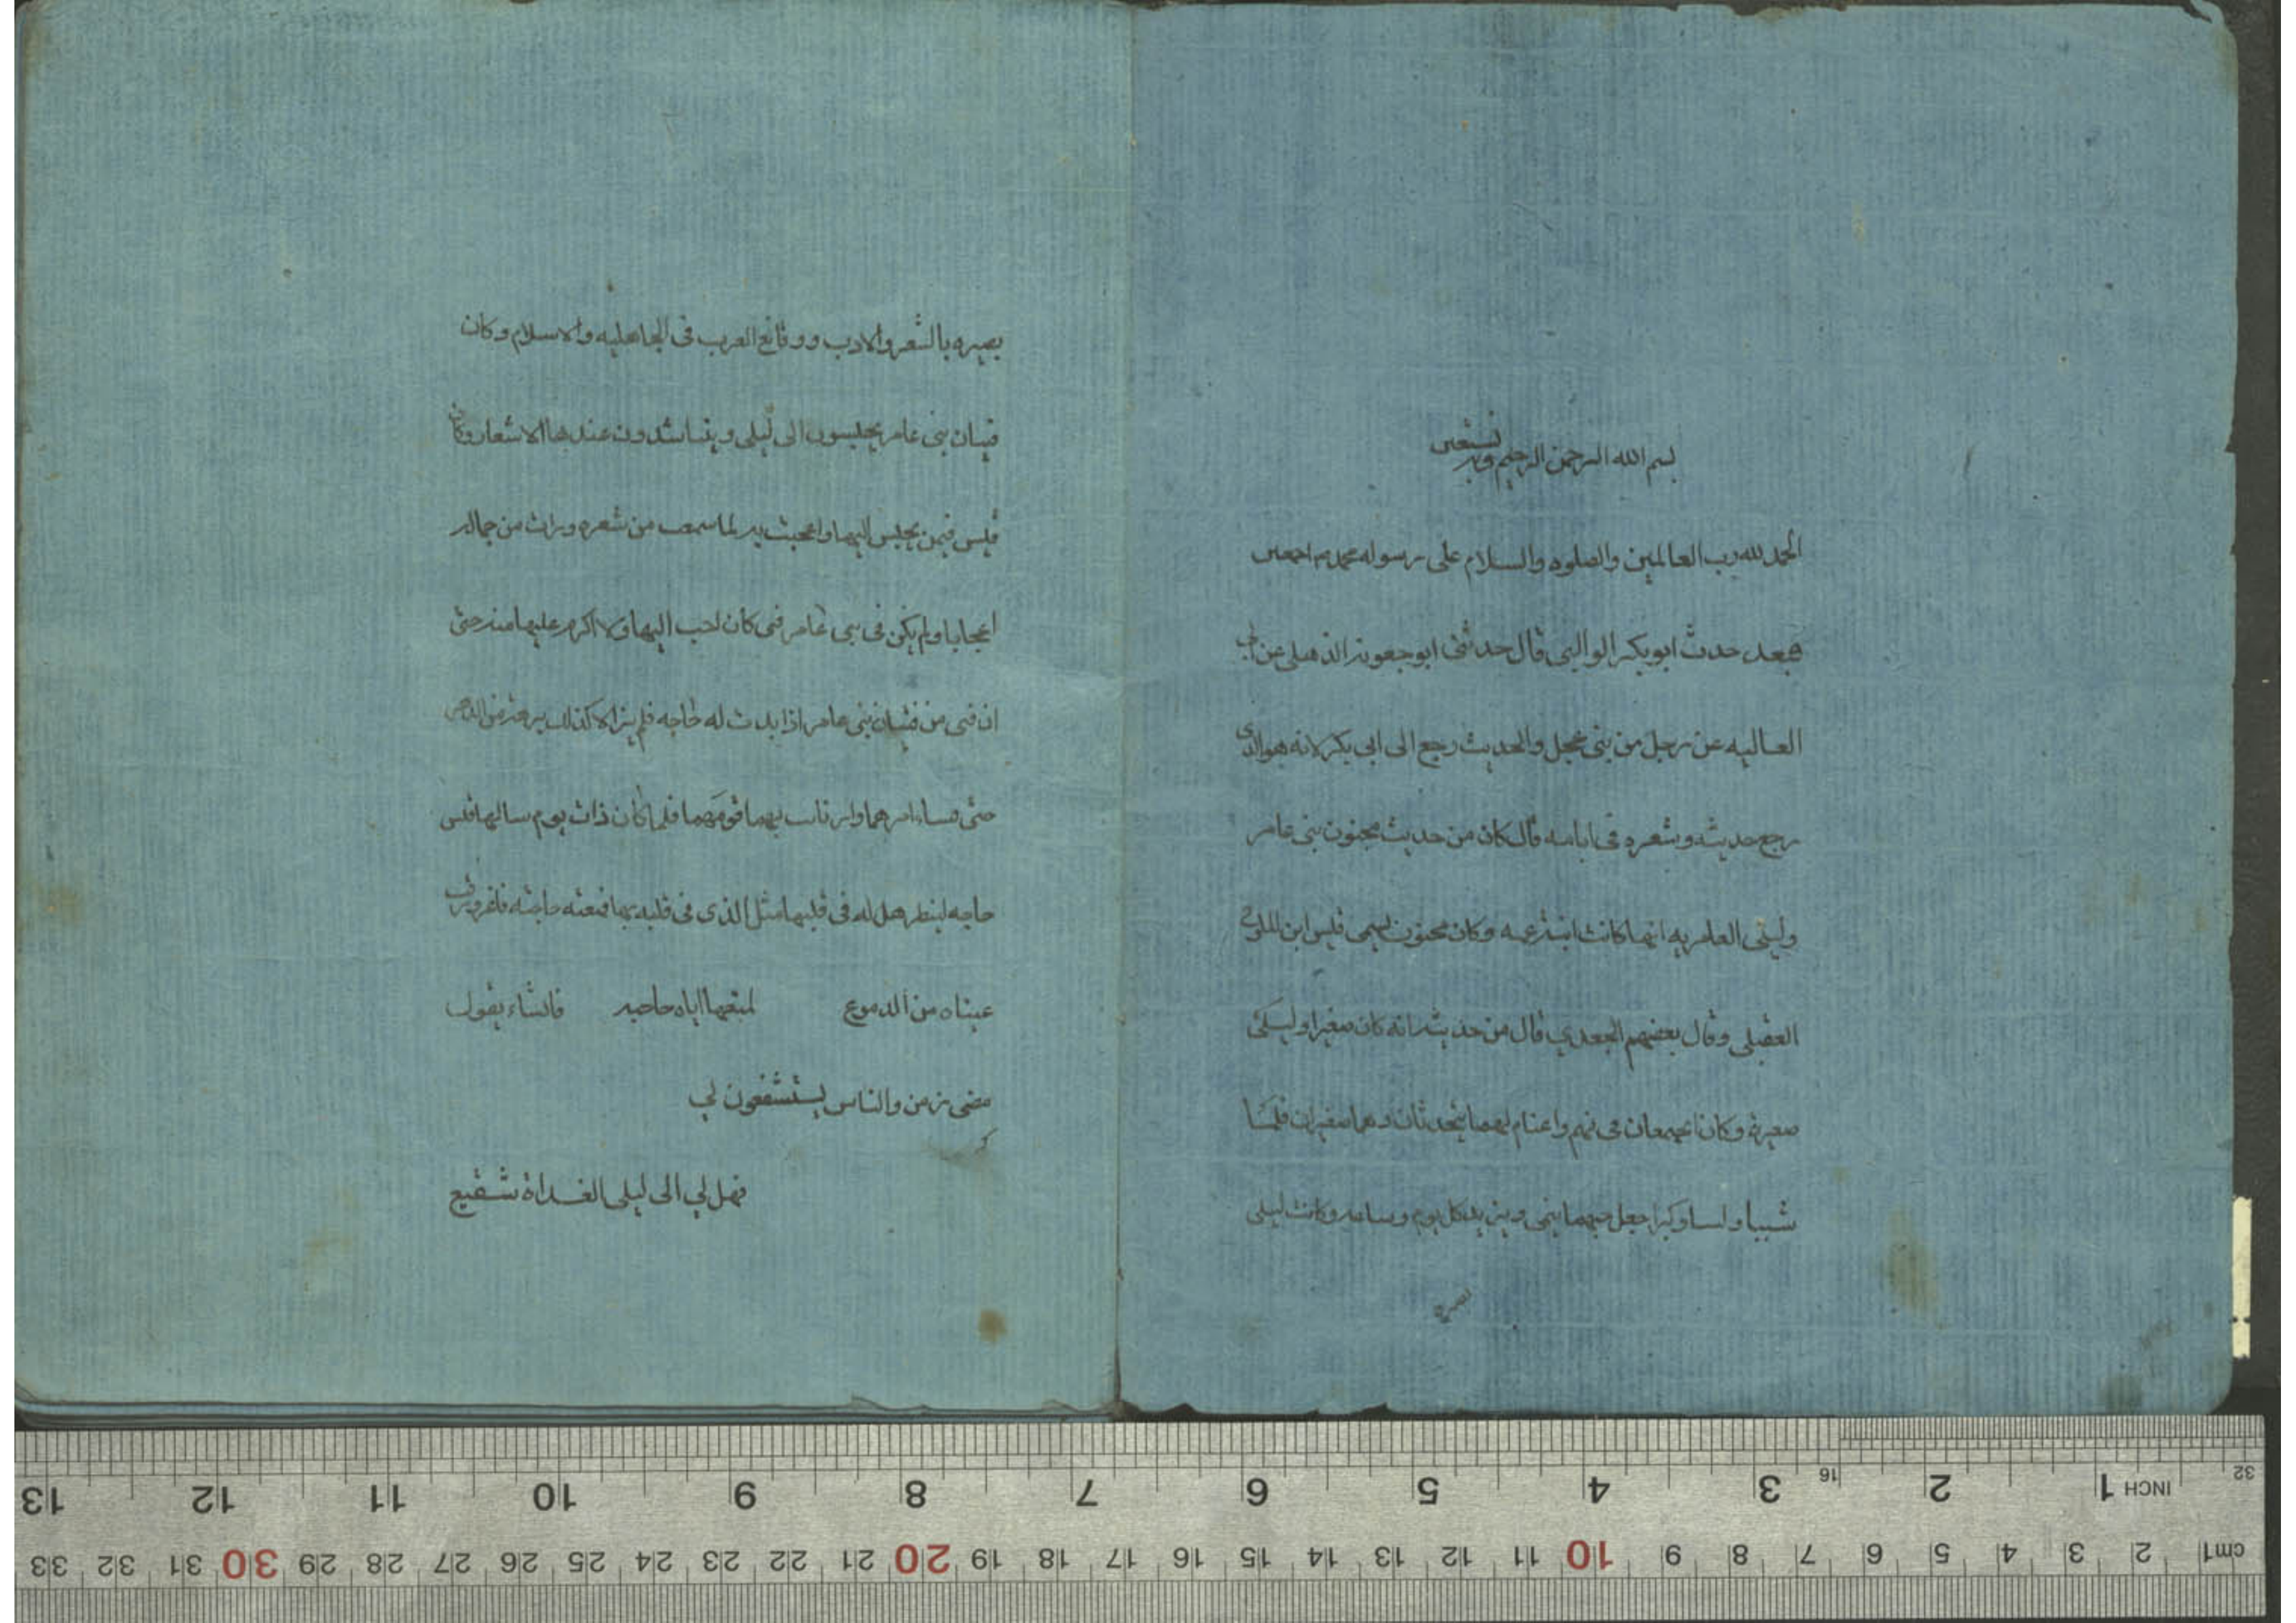 بسم الله الرحمن الرحيم وبه نستعين
الحمد لله رب العالمين والصلوه والسلام على رسوله محمد اجمعين
حدث ابو بكر الوالبى قال حدثنى ابو جعونة الذهلى عن ابى
العاليه عن رجل من بنى عجل والحديث رجع الى ابى بكر لانه هو الذى
رجع حديثه وشعره فى ايامه قال كان من حديث مجنون بنى عامر
وليلى العامريه انها كانت ابنة عمه وكان مجنون يسمى قيس ابن الملوح
العقيلى وقال بعضهم الجعدي قال من حديثه انه كان صغيرا وليلى
صغيرة وكانا يجتمعان فى بهم واغنام لهما يتحدثان وهما صغيران فلما
شببا وكبرا جعل حبهما ينمى ويزيد كل يوم وساعه وكانت ليلى
بصيره
بصيره بالشعر والادب ووقائع العرب فى الجاهليه والاسلام وكان
فتيان بنى عامر يجلسون الى ليلى ويتناشدون عندها الاشعار وكان
قيس فيمن يجلس اليها واعجبت به لما سمعت من شعره ورات من جماله
اعجابا ولم يكن فى بنى عامر فتى كان احب اليها ولا اكرم عليها منه حتى
ان فتى من فتيان بنى عامر اذا بدت له حاجه فلم يزالا كذلك برهة من الدهر
حتى فشا امرهما وارتاب بهما قومهما فلما كان ذات يوم سالها قيس
حاجه لينظر هل له فى قلبها مثل الذى فى قلبه بها فمنعته حاجته فاغرورقت
عيناه من الدموع لمنعها اياه حاجته فانشاء يقول
مضى زمن والناس يستشفعون لي
فهل لي الى ليلى الغداة شفيع
13 12 11 10 9 8 7 6 5 4 3 16 2 1 INCH 32
33 32 31 30 29 28 27 26 25 24 23 22 21 20 19 18 17 16 15 14 13 12 11 10 9 8 7 6 5 4 3 2 cm1